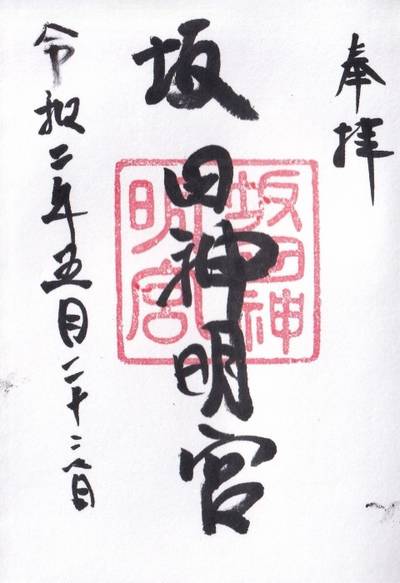 奉拝
坂田神明宮
坂田神
明宮
令和二年五月二十二日